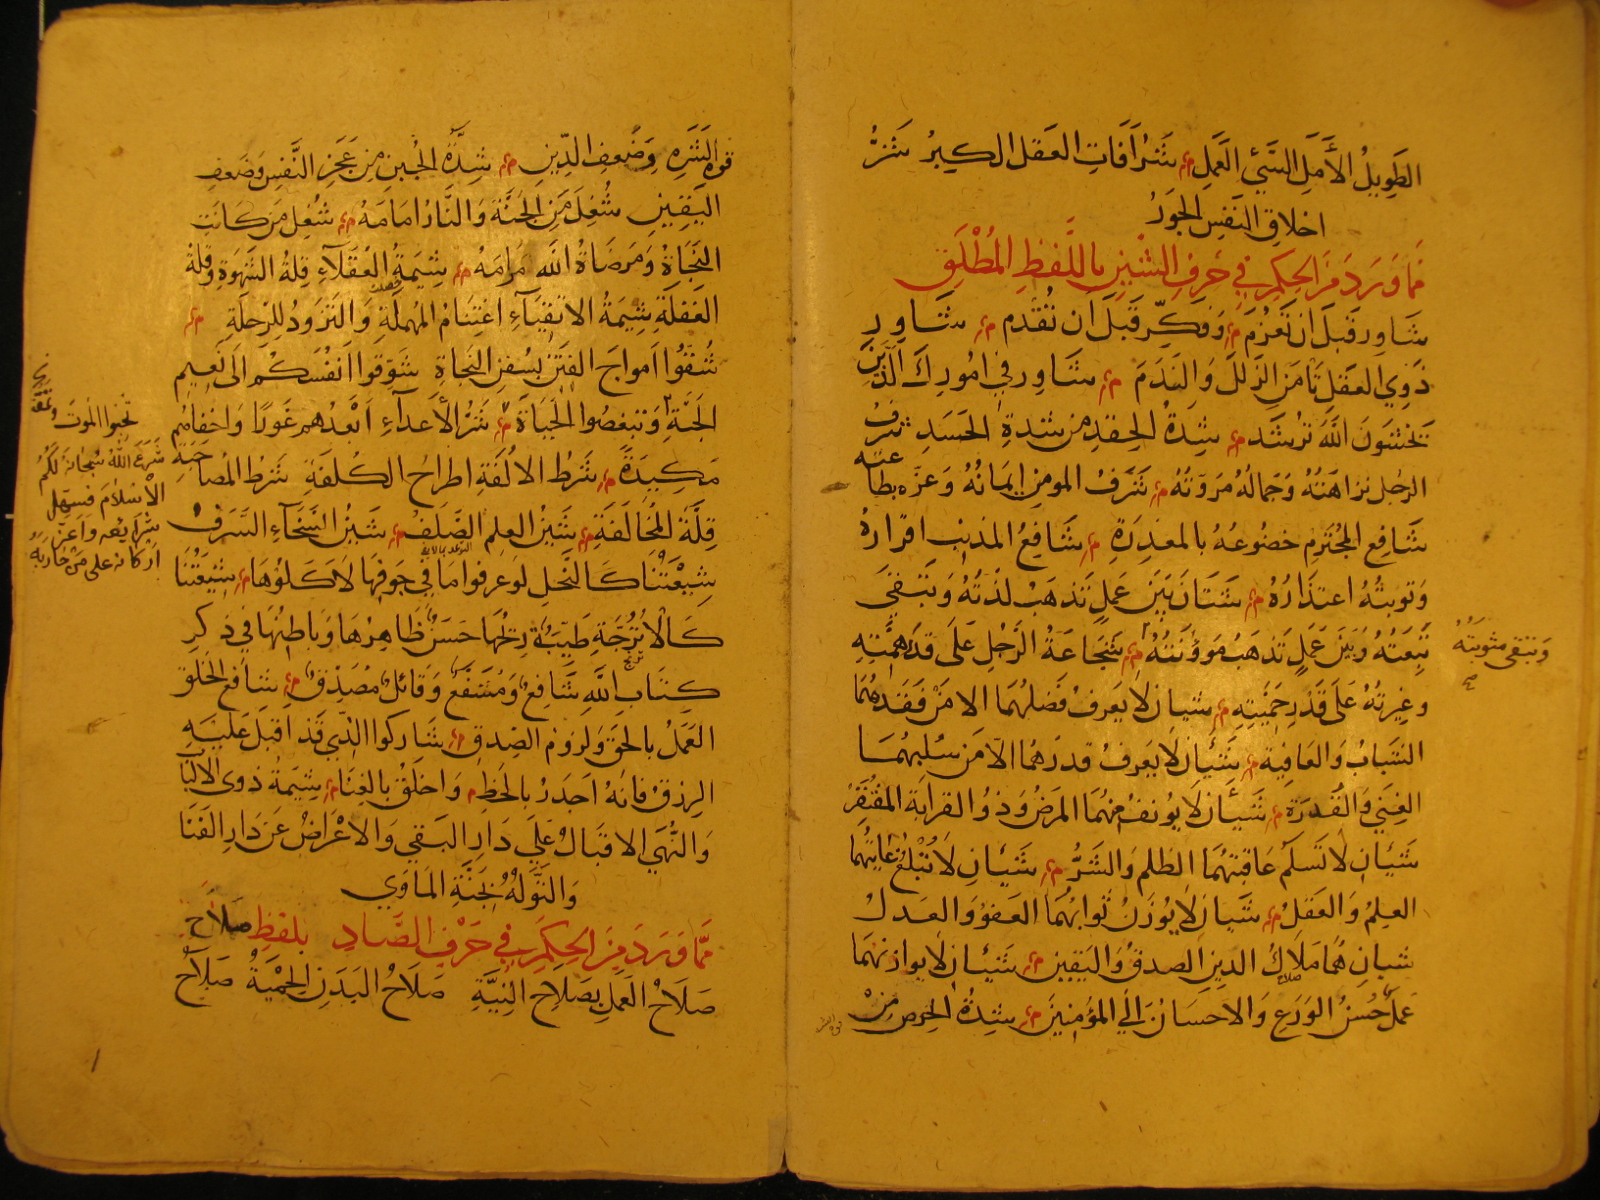 الطَوِيلُ الأَمَلِ السَّيِّئِ العَمَلِ شَرُّ آفَاتِ العَقلِ الكِبرُ شَرُّ
اخلاقِ النَفسِ الجَورُ
مَمَا وَرَدَ مِنَ الحِكَمِ فِي حَرفِ الشينِ بِاللَّفظِ المُطْلَقِ
شَاوِر قَبلَ ان تَعْزُمَ وَفَكِّر قَبلَ ان تُقدم شَاوِر
ذَوِي العَقلِ تَأْمَنِ الزَلَلَ وَالنَدَمَ شَاوِر فِي امُورِكَ الَّذِينَ
يَخْشَونَ اللَّهَ تَرشُد شِدَةُ الحِقدِ مِن شِدةِ الحَسَدِ شَرَفُ
الرجلِ نزاهَتهُ وَجَمالهُ مروّتهُ شَرَفُ المومنِ ايمَانُهُ وَعزّه بطَا
عته
شَافِع المُجتَرِمِ خضُوعُهُ بالمَعذِرَةِ شَافِعُ المذنِبِ اقرَارهُ
وَتوبتُهُ اعتذَارُهُ شَتَانَ بَيَنَ عَمَلٍ تَذهَبُ لَذتُهُ وَتَبقَى
تَبِعَتُهُ وَبَيَنَ عَمَلٍ تَذهَبُ مَؤونَتهُ شَجَاعَةُ الرَجُلِ عَلَى قدَرِ هِمَّتِهِ
وَتبقى مثوبتُهُ
صح
وغِيرتُهُ عَلَى قَدرِ حَمِيَّتِهِ شيانِ لا يَعرفُ فَضلهُمَا الا مَن فَقَدَهُمَا
الشَبَابُ وَالعَافِية شَيئَانِ لَا يَعرِفُ قدرَهُمَا الّا مَن سُلِبهُمَا
الغِنَى وَالقُدرَة شَيئَانِ لَا يُونَفُ مِنهُمَا المَرَضُ وَذوُ القرابَةِ المفتَقِرُ
شَيئانِ لَا تَسلَمُ عَاقبَتهُمَا الظلم وَالشَّرُّ شَيئَانِ لَا تُبْلَغُ غَايتُهُمَا
العِلمُ وَالعَقلُ شَيئانِ لَا يُوزَنُ ثَوابهُمَا العَفوُ وَالعَدلُ
شيان هُمَا مَلَاكُ الدينِ الصدقُ وَاليَقِين شَيئَانِ لَا يوازنهمَا
عَمَلٌ حُسنُ الوَرَعِ وَالاحسَانُ الَى المُؤمِنِينَ شِدَةُ الحِرصِ مِنْ
قوه الشره
قوة الشَرَهِ وَضَعفِ الدِّينِ شِدَّةُ الجُبنِ مِن عَجَزِ النَّفسِ وَضَعفِ
اليَقِينِ شُغِلَ مَنِ الجَنَّة وَالنَّارُ امَامَهُ شُغِل مَن كَانَتِ
النَجَاةُ وَمَرضَاةُ اللَّهِ مَرَامَهُ شِيمَةُ العُقَلَآءِ قِلةُ الشَهوَةِ وَقلةُ
الغَفلَةِ شِيمَةُ الاتقِيَآءِ اغتِنَامُ المُهلَةِ وَالتَزَودُ لِلرِحلَةِ
شُقُوا اَموَاجَ الفِتَنِ بِسُفنِ النَجَاةِ شَوِّقوا اَنفُسَكُم الَى نَعِيمِ
الجَنَّةِ وَتبغضُوا الحَيَاةَ شَرُّ الأعدآءِ اَبْعَدُهم غَورًا وَاخفاهُم
تحِبوا المَوتَ وَ
مَكِيدَةً شَرطُ الالفَةِ اطراحُ الكُلفَةِ شَرطُ المُصَاحَبَةِ
شَرَعَ اللهُ سُبحانهُ لَكُمُ
الاسْلَامَ فَسهّل
شَرَايعه وَاعز
اركانه على من حَاربهُ
قِلَّةُ المُخَالَفَةِ شَينُ العِلمِ الصَّلَفُ شَينُ السَّخَآءِ السَّرَفُ
شِيعَتُنَا كَالنَحلِ لوعرفوا مَا فِي جَوفِهَا لَاَكَلوُهَا شِيعَتُنَا
كَالاُترُجَّةِ طَيِّبٌ رِيحُهَا حَسَنٌ ظَاهِرُهَا وَبَاطِنُهَا فِي ذكرِ
كِتَابِ اللَّهِ شَافِعٌ وَمُشَفَّعٌ وَقَائلٌ مُصَدَّقٌ شافع الخلق
العَمَلُ بِالحَق وَلزوم الصِدقِ شَارِكوا الّذِي قَد اَقبَلَ عَلَيهِ
الرِزقُ فَانهُ اَجدَرُ بِالحَظِ وَاخلَقُ بِالغِنَا شِيمَةُ ذوى الالبَابِ
وَالنُّهَى الاقبَالُ عَلَى دَارِ البَقى وَالاعْرَاضُ عَن دَارِ الفَنَا
وَالتَوَلّهُ بجَنَّةِ المَأوَى
مَمَّا وَرَدَ مِنَ الحِكَمِ فِي حَرْفِ الصَّادِ بِلفظِ صَلَاح
صَلَاحُ العَمَلِ بِصَلَاحِ النِيَّةِ صَلَاحُ البَدَنِ الحِمْيَةُ صَلَاحُ